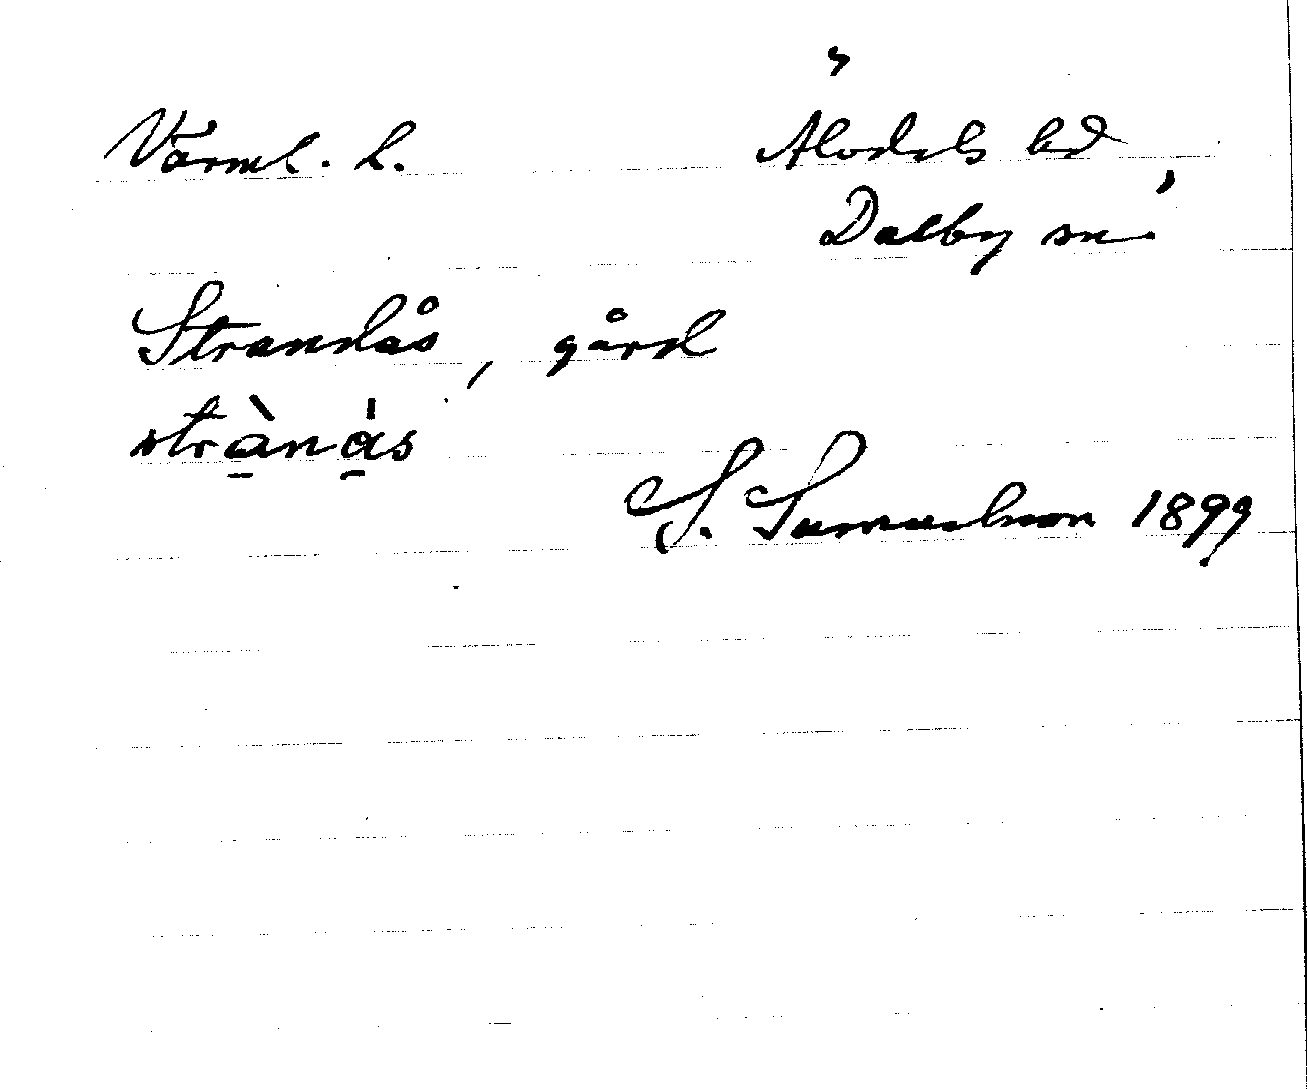 Värml. L. Älvdals hd
Dalby sn.
Strandås, gård
stràna̍s
S. Samuelsson 1899